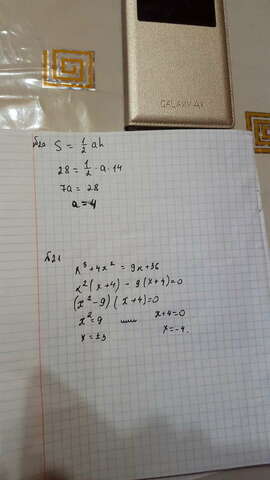 GALAXY A5
№20 S = 1/2 ah
28 = 1/2 · a · 14
7a = 28
a = 4
№21
x³ + 4x² = 9x + 36
x²(x+4) - 9(x+4) = 0
(x² - 9)(x+4) = 0
x² = 9 или x+4=0
x = ±3 x = -4.